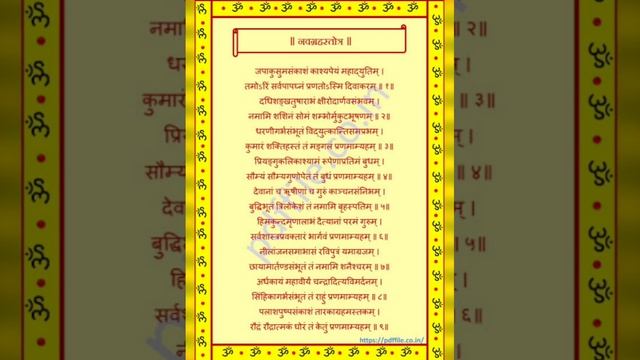 ॥ नवग्रहस्तोत्र ॥
जपाकुसुमसंकाशं काश्यपेयं महाद्युतिम् ।
तमोऽरिं सर्वपापघ्नं प्रणतोऽस्मि दिवाकरम् ॥ १॥
दधिशङ्खतुषाराभं क्षीरोदार्णवसंभवम् ।
नमामि शशिनं सोमं शम्भोर्मुकुटभूषणम् ॥ २॥
धरणीगर्भसंभूतं विद्युत्कान्तिसमप्रभम् ।
कुमारं शक्तिहस्तं तं मङ्गलं प्रणमाम्यहम् ॥ ३॥
प्रियङ्गुकलिकाश्यामं रूपेणाप्रतिमं बुधम् ।
सौम्यं सौम्यगुणोपेतं तं बुधं प्रणमाम्यहम् ॥ ४॥
देवानां च ऋषीणां च गुरुं काञ्चनसंनिभम् ।
बुद्धिभूतं त्रिलोकेशं तं नमामि बृहस्पतिम् ॥ ५॥
हिमकुन्दमृणालाभं दैत्यानां परमं गुरुम् ।
सर्वशास्त्रप्रवक्तारं भार्गवं प्रणमाम्यहम् ॥ ६॥
नीलांजनसमाभासं रविपुत्रं यमाग्रजम् ।
छायामार्तण्डसंभूतं तं नमामि शनैश्चरम् ॥ ७॥
अर्धकायं महावीर्यं चन्द्रादित्यविमर्दनम् ।
सिंहिकागर्भसंभूतं तं राहुं प्रणमाम्यहम् ॥ ८॥
पलाशपुष्पसंकाशं तारकाग्रहमस्तकम् ।
रौद्रं रौद्रात्मकं घोरं तं केतुं प्रणमाम्यहम् ॥ ९॥
https://pdffile.co.in/
pdffile.co.in